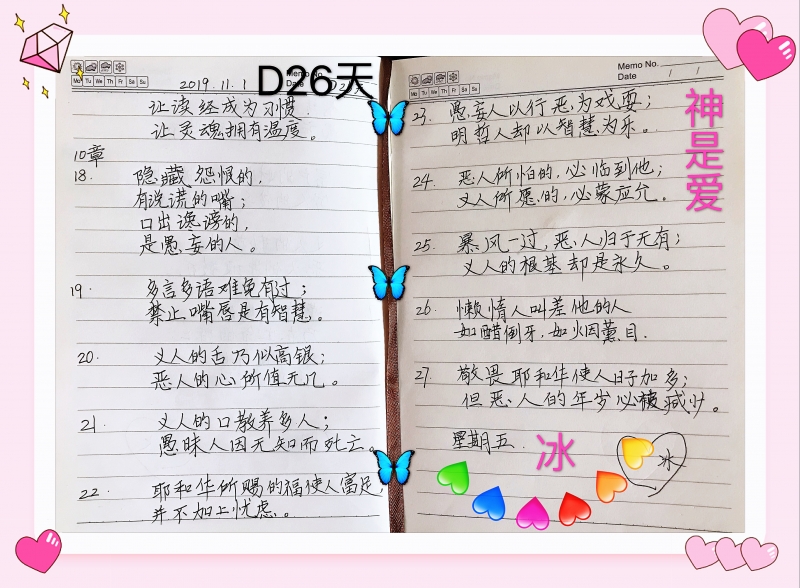 Memo No.
Mo Tu We Th Fr Sa Su
Date
2019.11.1
D26天
让读经成为习惯
让灵魂拥有温度。
10章
18. 隐藏怨恨的,
有说谎的嘴;
口出谗谤的,
是愚妄的人。
19. 多言多语难免有过;
禁止嘴唇是有智慧。
20. 义人的舌乃似高银;
恶人的心所值无几。
21. 义人的口教养多人;
愚昧人因无知而死亡。
22. 耶和华所赐的福使人富足,
并不加上忧虑。
Memo No.
Mo Tu We Th Fr Sa Su
Date / /
23. 愚妄人以行恶为戏耍;
明哲人却以智慧为乐。
24. 恶人所怕的,必临到他;
义人所愿的,必蒙应允。
25. 暴风一过,恶人归于无有;
义人的根基却是永久。
26. 懒惰人叫差他的人
如醋倒牙,如烟薰目.
27. 敬畏耶和华使人日子加多;
但恶人的年岁必被减少。
星期五
冰
冰
神是爱